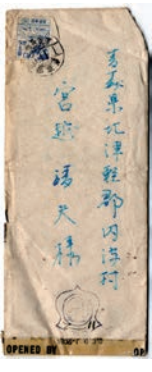 青森県北津軽郡内潟村
宮越靖夫様
OPENED BY